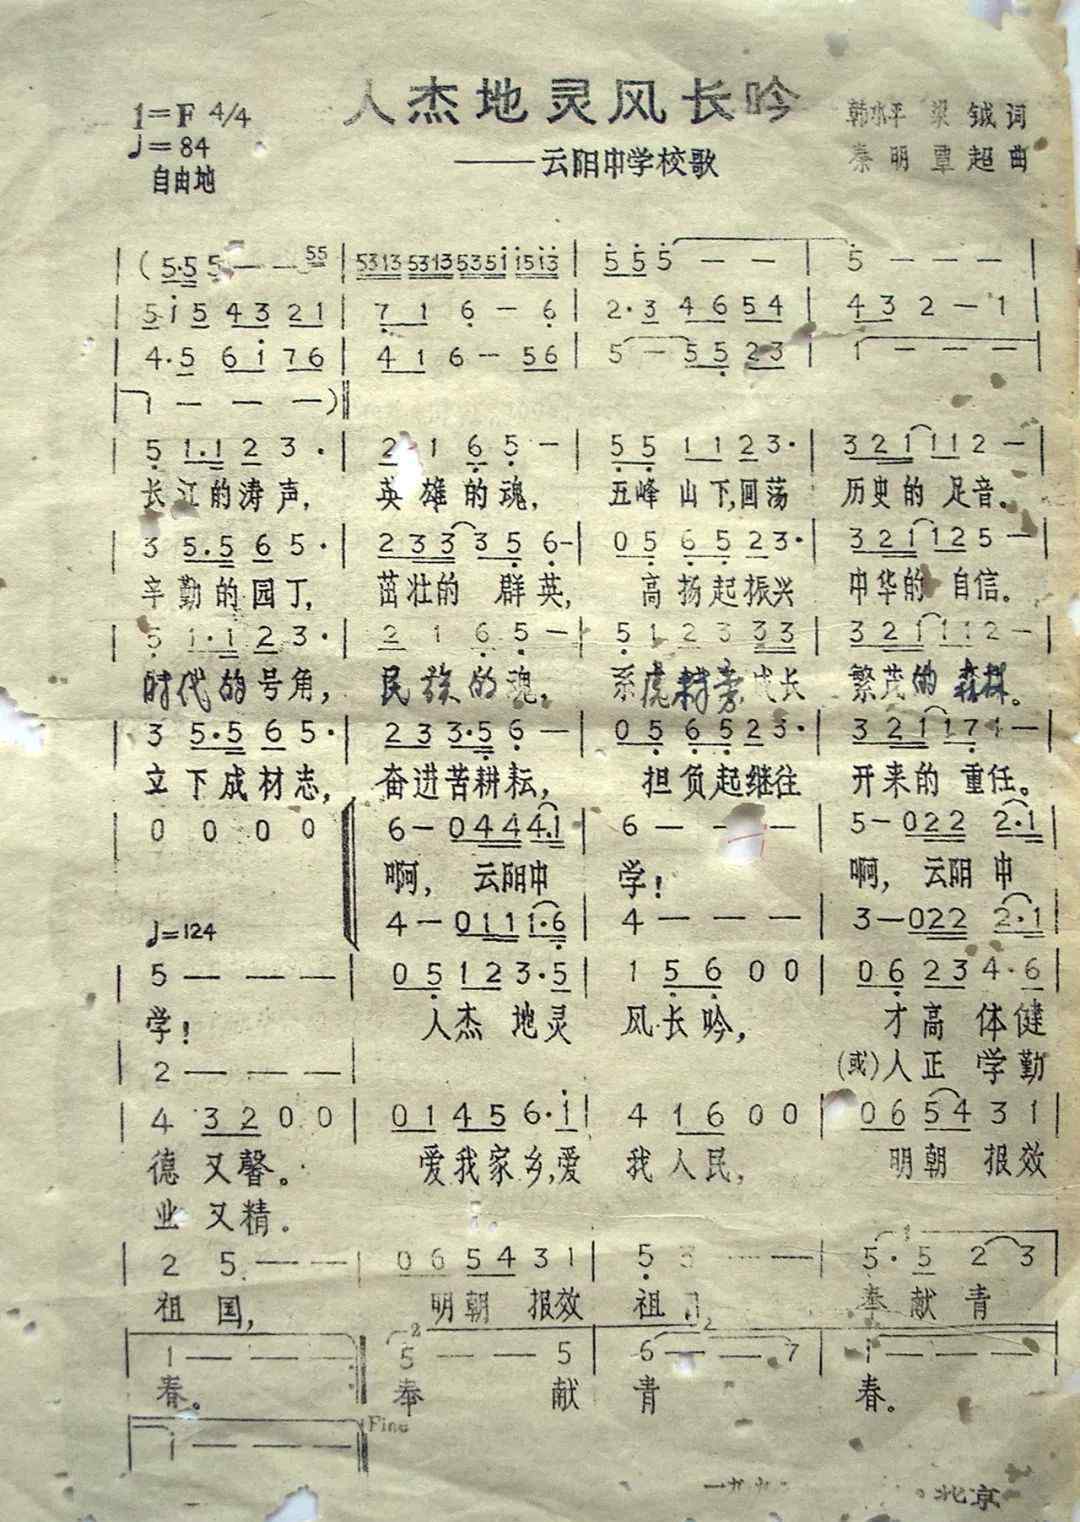 人杰地灵风长吟
1=F 4/4
♩=84
自由地
——云阳中学校歌
韩水平 梁钺词
秦明 覃超曲
| (5·5 5 — — 55 | 5313 5313 5351 1513 | 5 5 5 — — | 5 — — —
5 1 5 4 3 2 1 | 7 1 6 — 6 | 2·3 4 6 5 4 | 4 3 2 — 1 |
4·5 6 1 7 6 | 4 1 6 — 5 6 | 5 — 5 5 2 3 | 1 — — — |
1 — — —) ||
5 1·1 2 3· | 2 1 6 5 — | 5 5 1 1 2 3· | 3 2 1 1 1 2 — |
长江的涛声, 英雄的魂, 五峰山下,回荡 历史的足音。
3 5·5 6 5· | 2 3 3 3 5 6 — | 0 5 6 5 2 3· | 3 2 1 1 2 5 — |
辛勤的园丁, 茁壮的群英, 高扬起振兴 中华的自信。
5 1·1 2 3· | 2 1 6 5 — | 5 1 2 3 3 3 | 3 2 1 1 1 2 — |
时代的号角, 民族的魂, 系 成长 繁茂的森林。
3 5·5 6 5· | 2 3 3 3·5 6 — | 0 5 6 5 2 3· | 3 2 1 1 7 1 — |
立下成材志, 奋进苦耕耘, 担负起继往 开来的重任。
0 0 0 0 | 6 — 0 4 4 4 4·1 | 6 — — — | 5 — 0 2 2 2·1 |
啊, 云阳中 学! 啊, 云阳中
♩=124
4 — 0 1 1 1·6 | 4 — — — | 3 — 0 2 2 2·1 |
5 — — — | 0 5 1 2 3·5 | 1 5 6 0 0 | 0 6 2 3 4·6 |
学! 人杰地灵 风长吟, 才高体健
2 — — — |
(或)人正学勤
4 3 2 0 0 | 0 1 4 5 6·1 | 4 1 6 0 0 | 0 6 5 4 3 1 |
德又馨。 爱我家乡,爱 我人民, 明朝报效
业又精。
2 5 — — | 0 6 5 4 3 1 | 5 3 — — | 5·5 2 3 |
祖国, 明朝报效 祖 奉献青
1 — — — | 5 — — 5 | 6 — — 7 | 1 — — — |
春。 奉 献 青 春。
Fine
1 — — — ||
一九九 北京